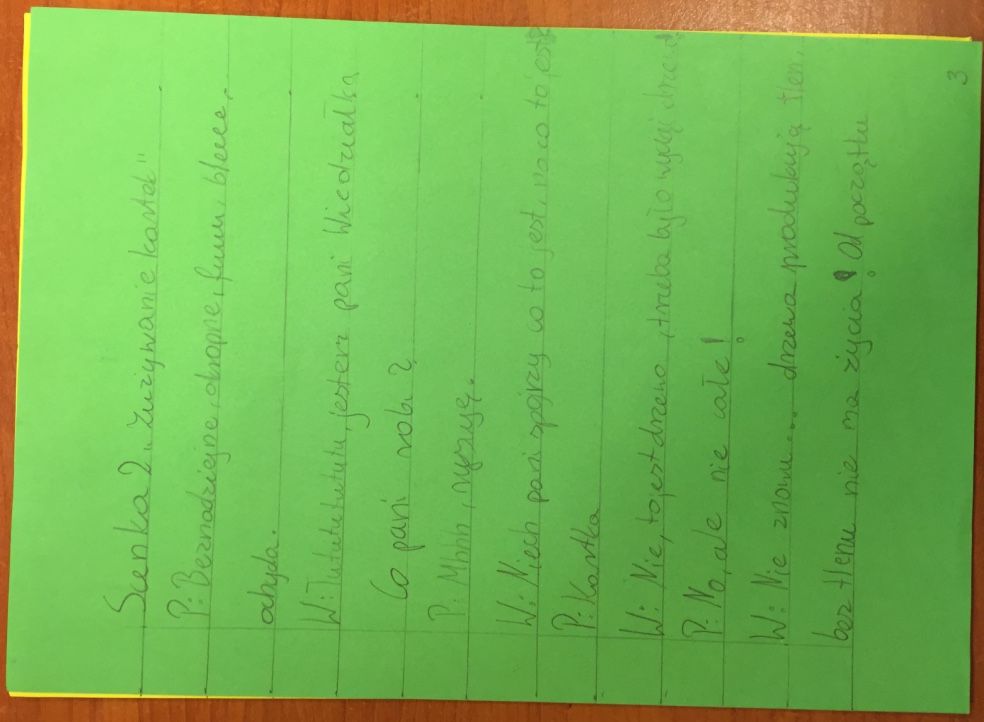 Scenka 2 „Zużywanie kartek"
P: Beznadziejne, okropne, fuuu, bleee,
ohyda.
W: Tutututututu, jestem pani Wiedzialka
Co pani robi?
P: Mhhh, rysuję.
W: Niech pani spójrzy co to jest, no co to jest
P: Kartka
W: Nie, to jest drzewo, trzeba było wyciąć drzewo
P: No, ale nie całe!
W: Nie znowu.... drzewa produkują tlen,
bez tlenu nie ma życia! Od początku
3